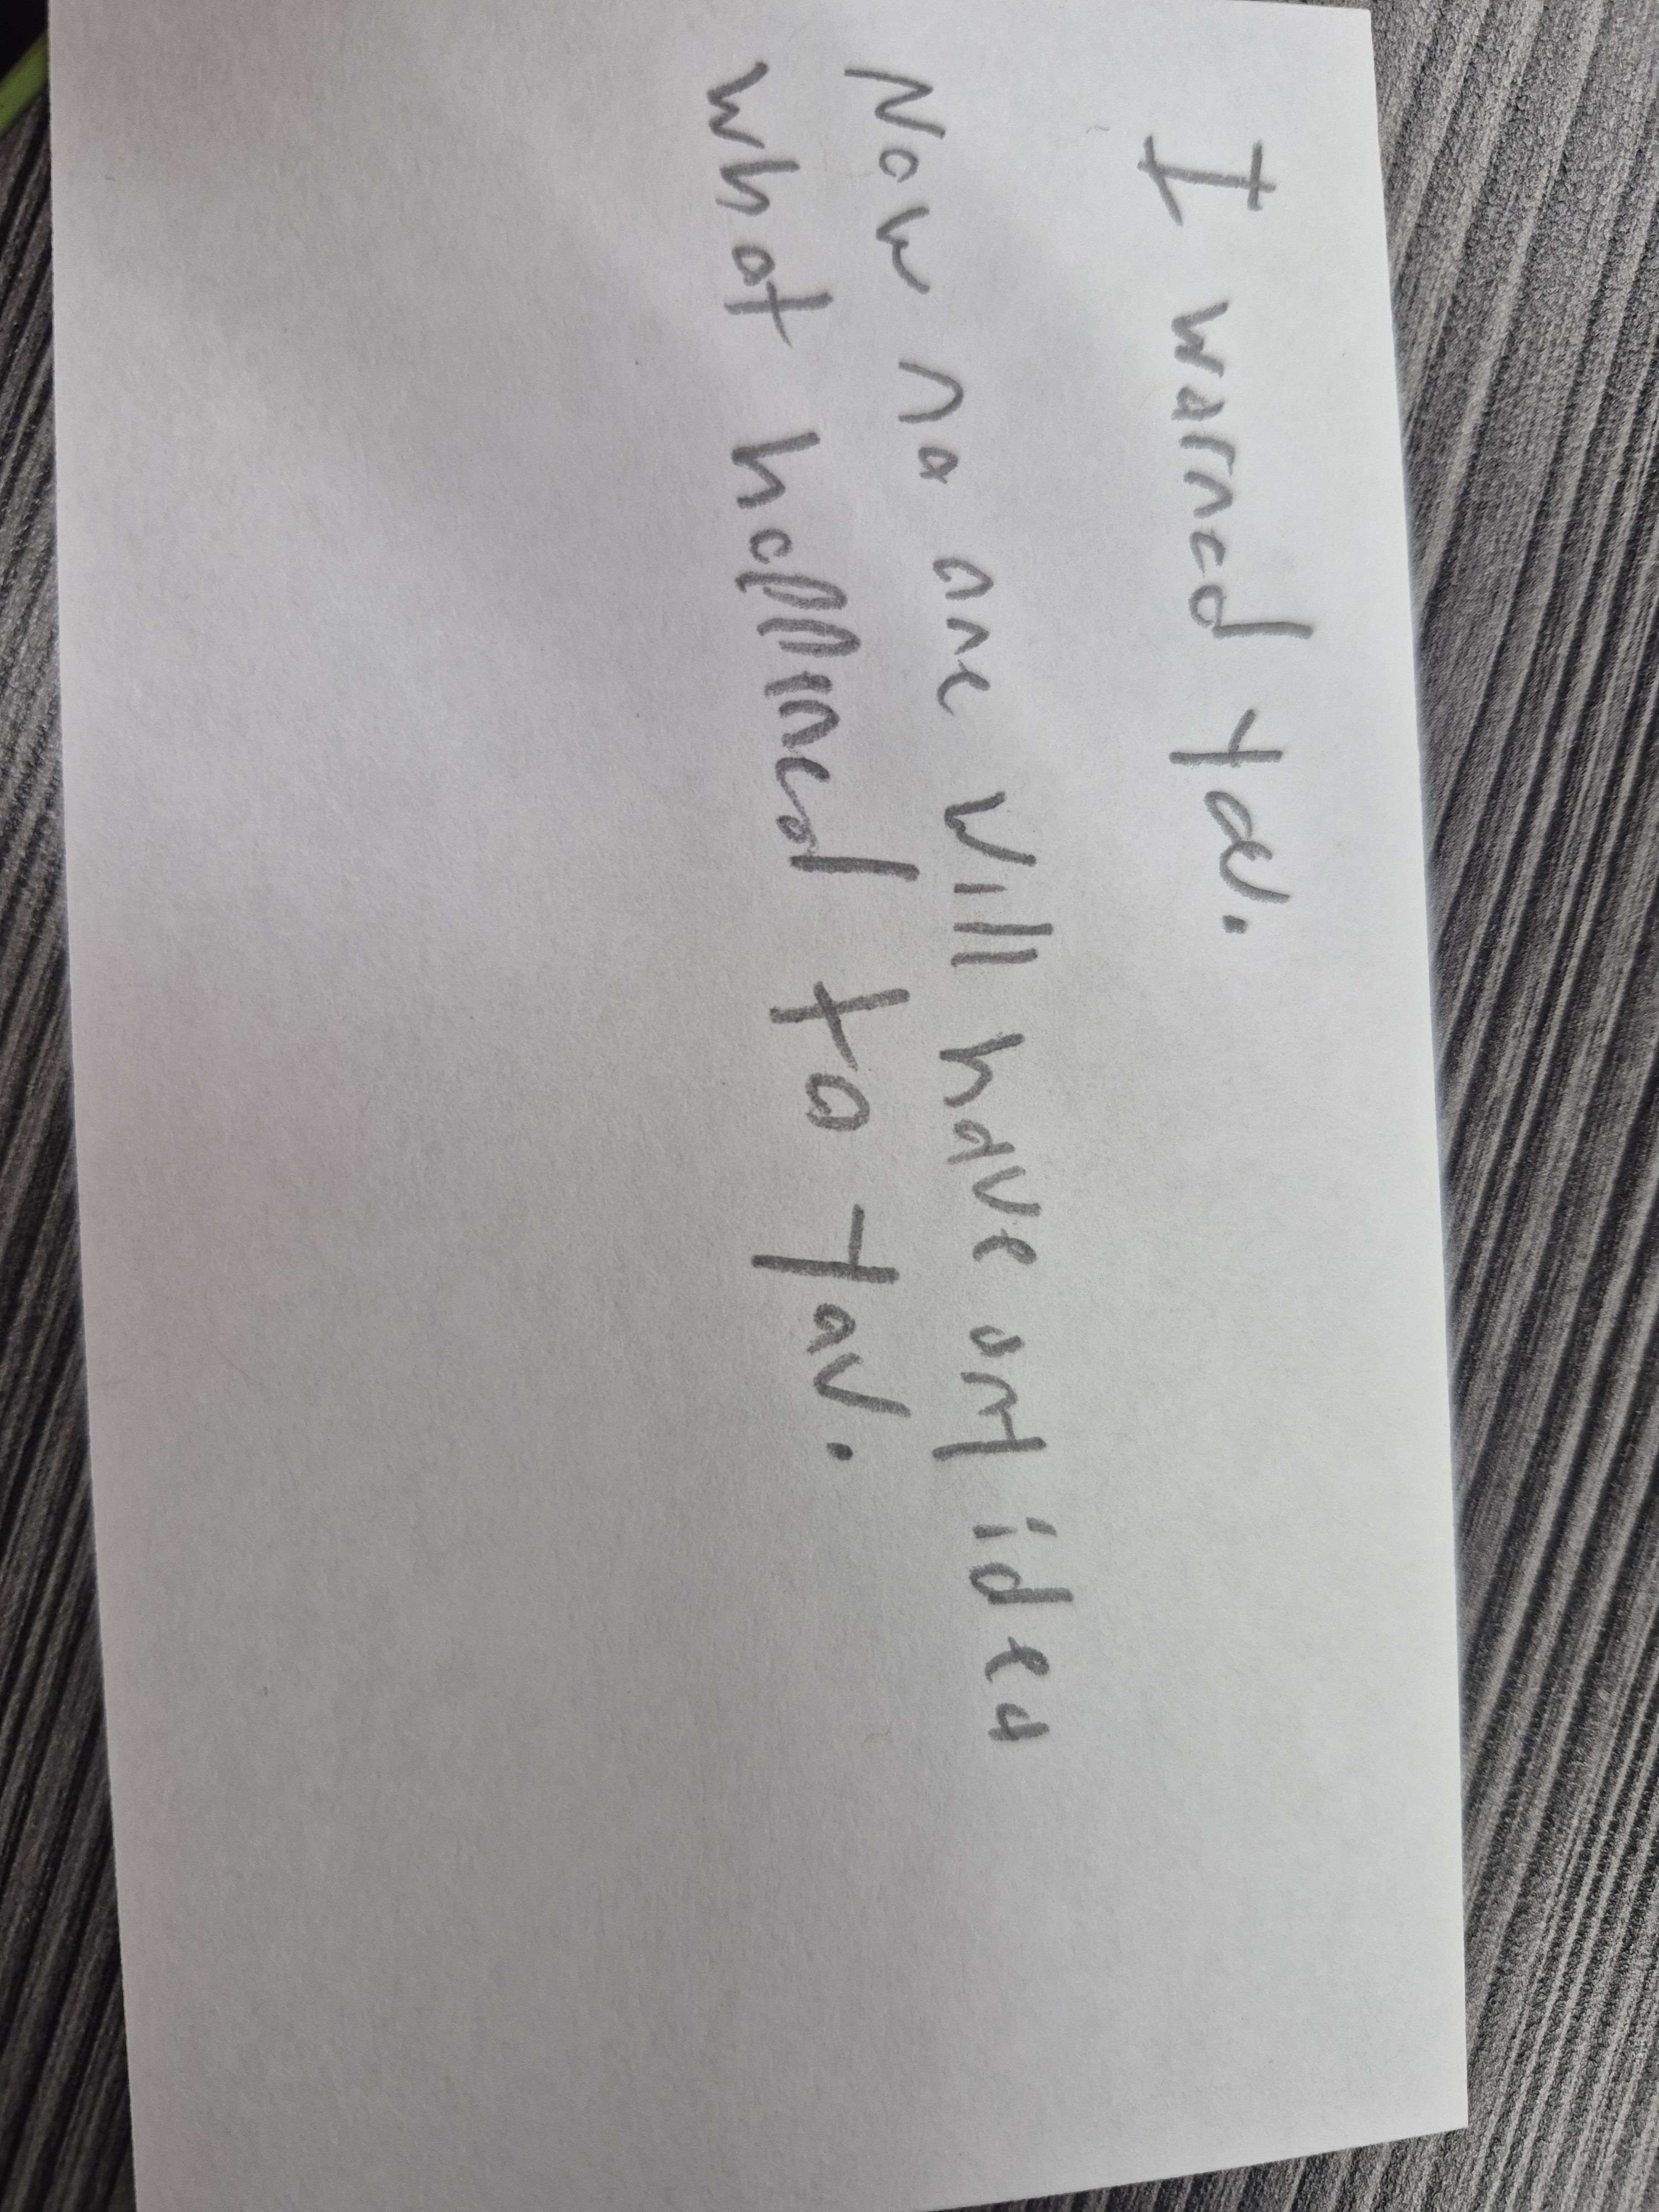 I warned you.
Now no one will have any idea
what happened to you.